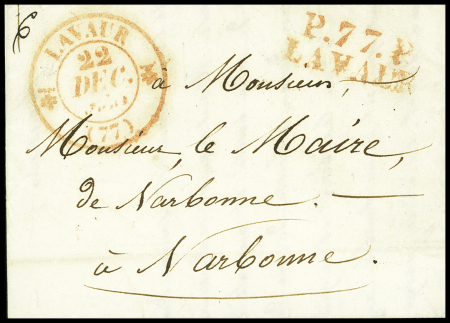 LAVAUR
22
DEC.
(77)
P.77.P
LAVAUR
à Monsieur,
Monsieur, le Maire,
de Narbonne. —
à Narbonne.